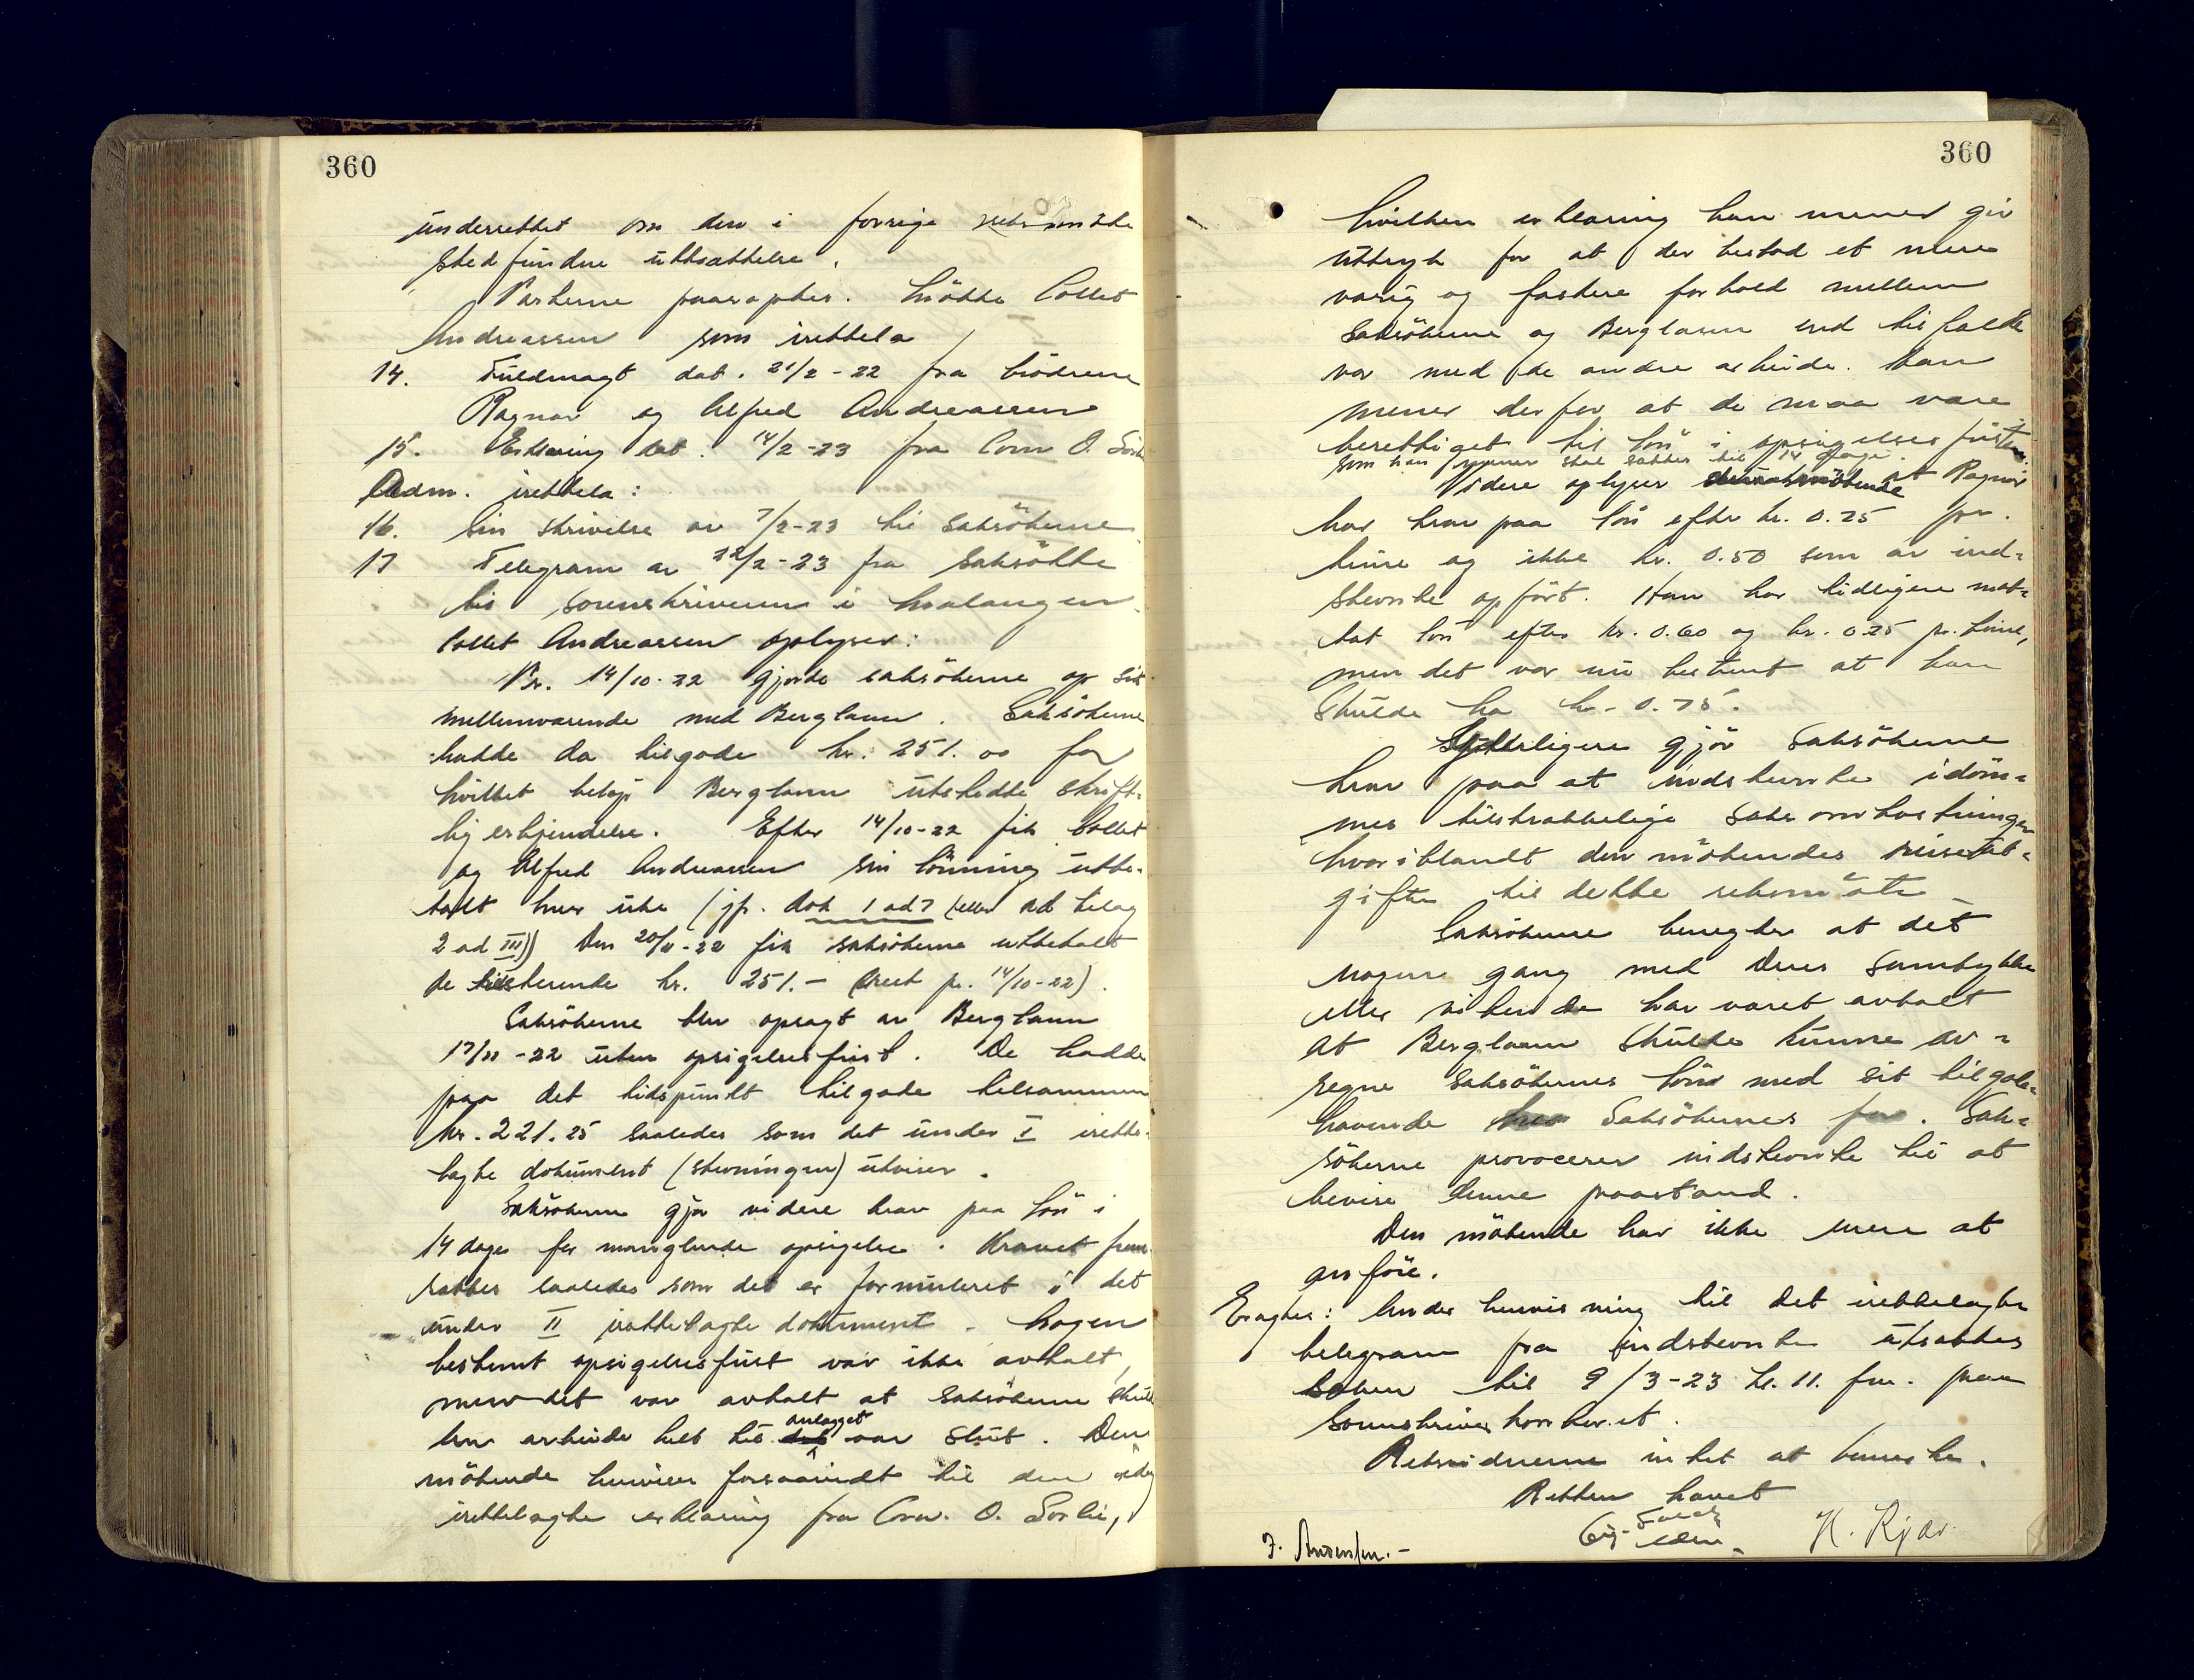 360
underrettet om den i forrige retsmöte
stedfundne utsættelse.
Parterne paaroptes. Mötte Collet
Andreassen som irettela
14. Fuldmagt dat. 21/2-22 fra brödrene
Ragnar og Alfred Andreassen
15. Erklæring dat. 14/2-23 fra Corn O.
Adm. irettela:
16. Sin skrivelse av 7/2-23 til saksökerne
17 Telegram av 22/2-23 fra saksökte
til sorenskriveren i Malangen.
Collet Andreassen oplyser:
Pr. 14/10-22 gjorde saksökerne op sit
mellemværende med Berglann. Saksökerne
hadde da tilgode kr. 251.00 for
hvilket belöp Berglann utstedte skrift-
lig erkjendelse. Efter 14/10-22 fik Collet
og Alfred Andreassen sin lönning utbe-
talt hver uke (jfr. dok 1 ad 7 (eller ad bilag
2 ad III)) Den 20/11-22 fik saksökerne utbetalt
de tilstaaende kr. 251.- (rest pr. 14/10-22).
Saksökerne blev opsagt av Berglann
17/11-22 uten opsigelsesfrist. De hadde
paa det tidspunkt tilgode tilsammen
kr. 221.25 saaledes som det under I irette-
lagte dokument (stevningen) utviser.
Saksökerne gjör videre krav paa lön i
14 dage for manglende opsigelse. Kravet frem-
sættes saaledes som det er formuleret i det
under II irettelagte dokument. Nogen
bestemt opsigelsesfrist var ikke avtalt,
men det var avtalt at saksökerne skul
ha arbeide helt til det anlægget var slut. Den
mötende henviser forsaavidt til den
irettelagte erklæring fra Corn. O. Sörlie,
360
hvilken erklæring han mener gir
uttryk for at der bestod et mere
varig og fastere forhold mellem
saksökerne og Berglann end tilfælde
var med de andre arbeide. Han
mener derfor at de maa være
berettiget til lön i opsigelsesfristen.
som han mener skal sættes til 14 dage.
Videre oplyser at Ragnar
har krav paa lön efter kr. 0.75 pr.
time og ikke kr. 0.50 som av ind-
stevnte opfört. Han har tidligere mot-
tat lön efter kr. 0.60 og kr. 0.25 pr. time,
men det var nu bestemt at han
skulde ha kr. 0.75.
Ytterligere gjör saksökerne
krav paa at indstevnte idöm-
mes tilstrækkelige saksomkostninger
hvoriblandt den mötendes reiseut-
gifter til dette retsmöte
Saksökerne benegter at det
nogen gang med deres samtykke
eller vitende har været avtalt
at Berglann skulde kunne av-
regne saksökernes lön med sit tilgode-
havende hos saksökernes far. Sak-
sökerne provocerer indstevnte til at
bevise denne paastand.
Den mötende har ikke mere at
anföre.
Eragtes: Under henvisning til det irettelagte
telegram fra indstevnte utsættes
saken til 9/3-23 kl. 11. fm. paa
Sorenskriverkontoret.
Retsvidnerne intet at bemerke.
Retten hævet
J. Andersen.-
H. Kjær.